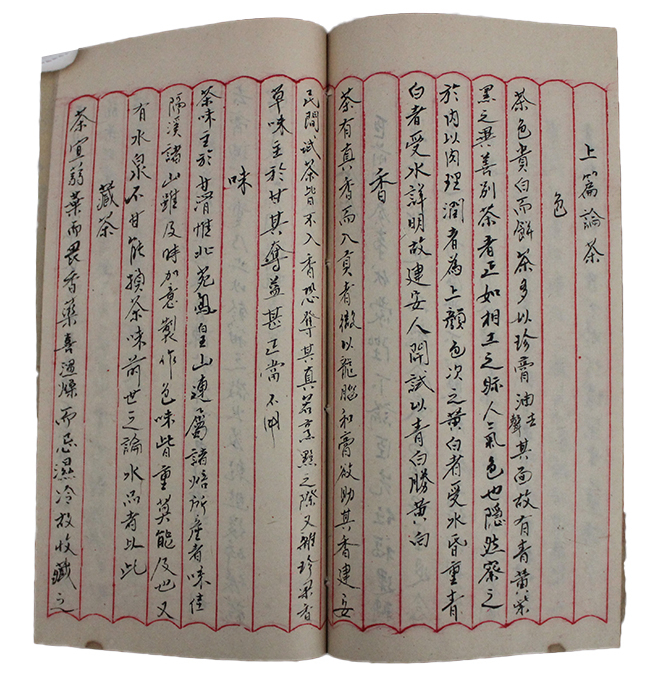 上篇論茶
色
茶色貴白而餅茶多以珍膏油去聲其面故有青黃紫
黑之異善別茶者正如相工之眎人氣色也隱然察之
於內以肉理潤者為上顏色次之黃白者受水昏重青
白者受水詳明故建安人開試以青白勝黃白
香
茶有真香而入貢者微以龍腦和膏欲助其香建安
民間試茶皆不入香恐奪其真若烹點之際又雜珍果香
草味主於甘其奪益甚正當不用
味
茶味主於甘滑惟北苑鳳皇山連屬諸焙所產者味佳
隔溪諸山雖及時加意製作色味皆重莫能及也又
有水泉不甘能損茶味前世之論水品者以此
藏茶
茶宜蒻葉而畏香藥喜溫燥而忌濕冷故收藏之